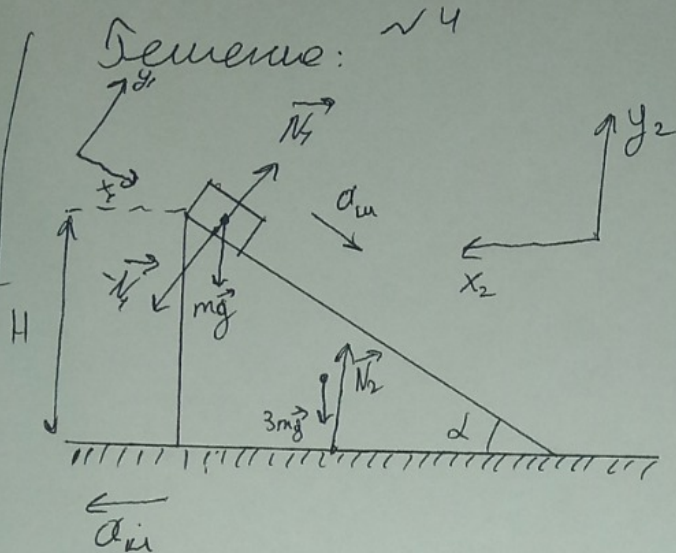 Решение: №4
y₁
x₁
N₁
aш
y₂
x₂
-N₁
mg
H
3mg
N₂
α
aкл